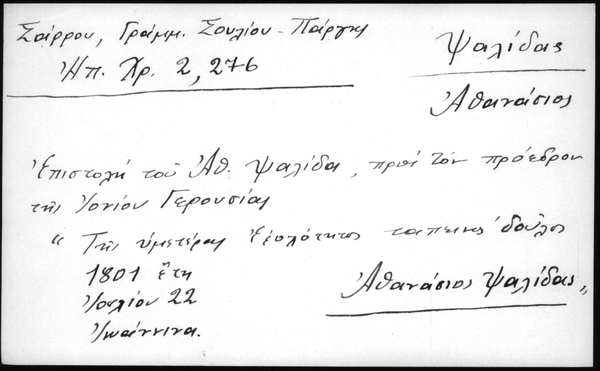 Σάρρου, Γράμμ. Σουλίου - Πάργης
Ἠπ. Χρ. 2, 276
Ψαλίδας
Ἀθανάσιος
Ἐπιστολή τοῦ Ἀθ. Ψαλίδα, πρός τόν πρόεδρον
τῆς Ἰονίου Γερουσίας
“ Τῆς ὑμετέρας Ἐξοχότητος ταπεινός δοῦλος
1801 ἔτη
Ἰουλίου 22
Ἰωάννινα.
Ἀθανάσιος Ψαλίδας „